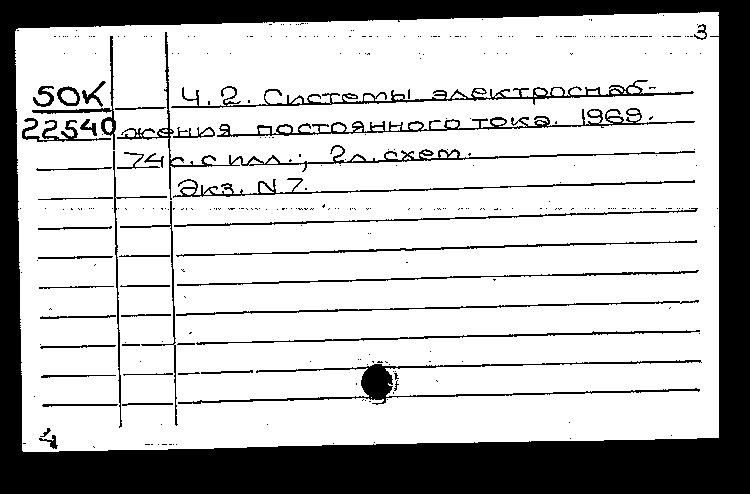 3
50К
22540
Ч. 2. Системы электроснаб-
жения постоянного тока. 1969.
74 с. с илл.; 2 л. схем.
Экз. N 7.
4